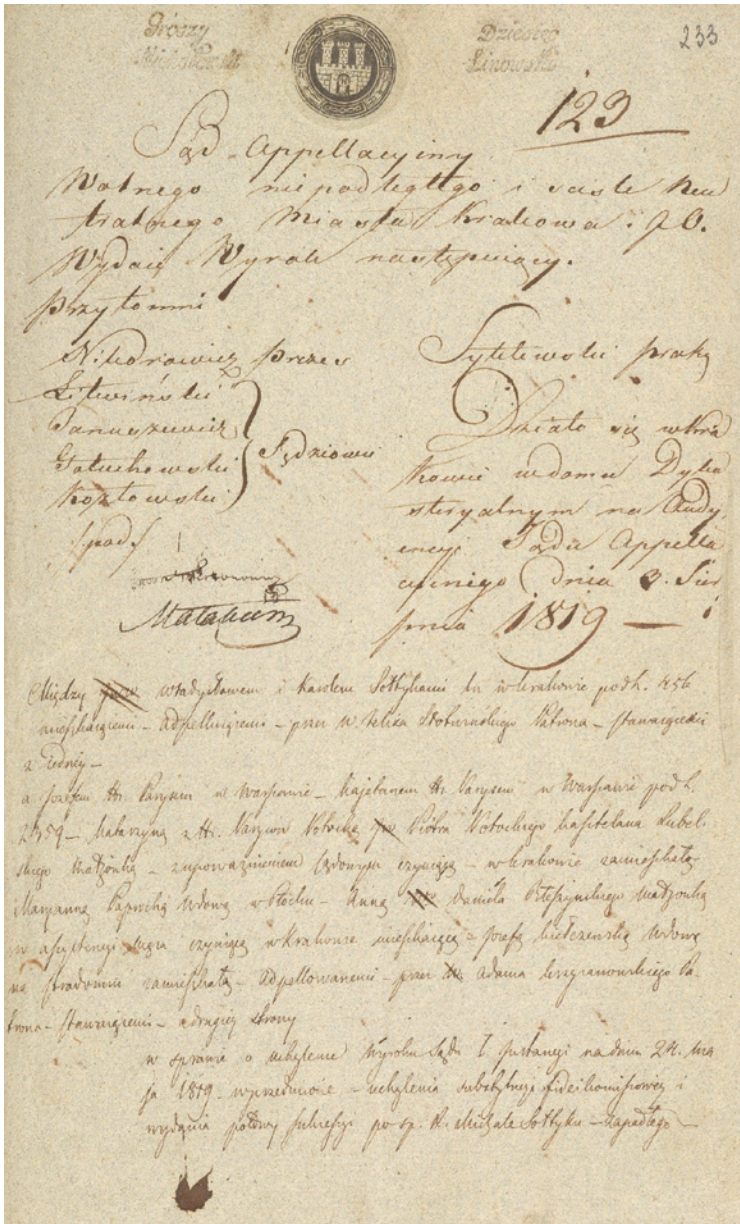 Groszy Dziesięć 233
Linowski
123
Sąd Appellacyiny
Wolnego niepodległego i scisle Neu
tralnego Miasta Krakowa i J. O.
Wydaie Wyrok następuiący.
Przytomni
Nikorowicz prezes
Litwiński
Januszewicz
Gołuchowski Sędziowie
Kozłowski
/pod/
Sytlewski pisarz
Działo się w Kra
kowie w domu Dyka
steryalnym na Audy
encyi Sądu Appella
cyinego dnia 3. Sier
pnia 1819 —
Między Władysławem i Karolem Sołtykami tu w Krakowie pod L. 456
mieszkaiącemi – Adpelluiącemi – przez Felixa Słotwińskiego Patrona – stawaiącemi
z iedney –
a Józefem Hr. Parysem w Warszawie – Kajetanem Hr. Parysem w Warszawie pod L.
2459 – Katarzyną z Hr. Parysów Potocką Piotra Potockiego Kasztelana Lubel-
skiego Małżonką – z upoważnieniem sądowym czyniącą – w Krakowie zamieszkałą
Maryanną wdową w Płocku – Anną Daniela małżonką
w assystencyi męża czyniącą w Krakowie mieszkaiącą – Józefą wdową
na Stradomiu zamieszkałą – Adpellowanemi – przez Adama Krzyżanowskiego Pa-
trona – stawaiącemi – z drugiey strony
w sprawie o uchylenie Wyroku Sądu I Instancyi na dniu 24. Ma
ja 1819 w przedmiocie – uchylenia substytucyi fideikomissowey i
wydania połowy sukcessyi po śp. X. Michale Sołtyku – zapadłego –